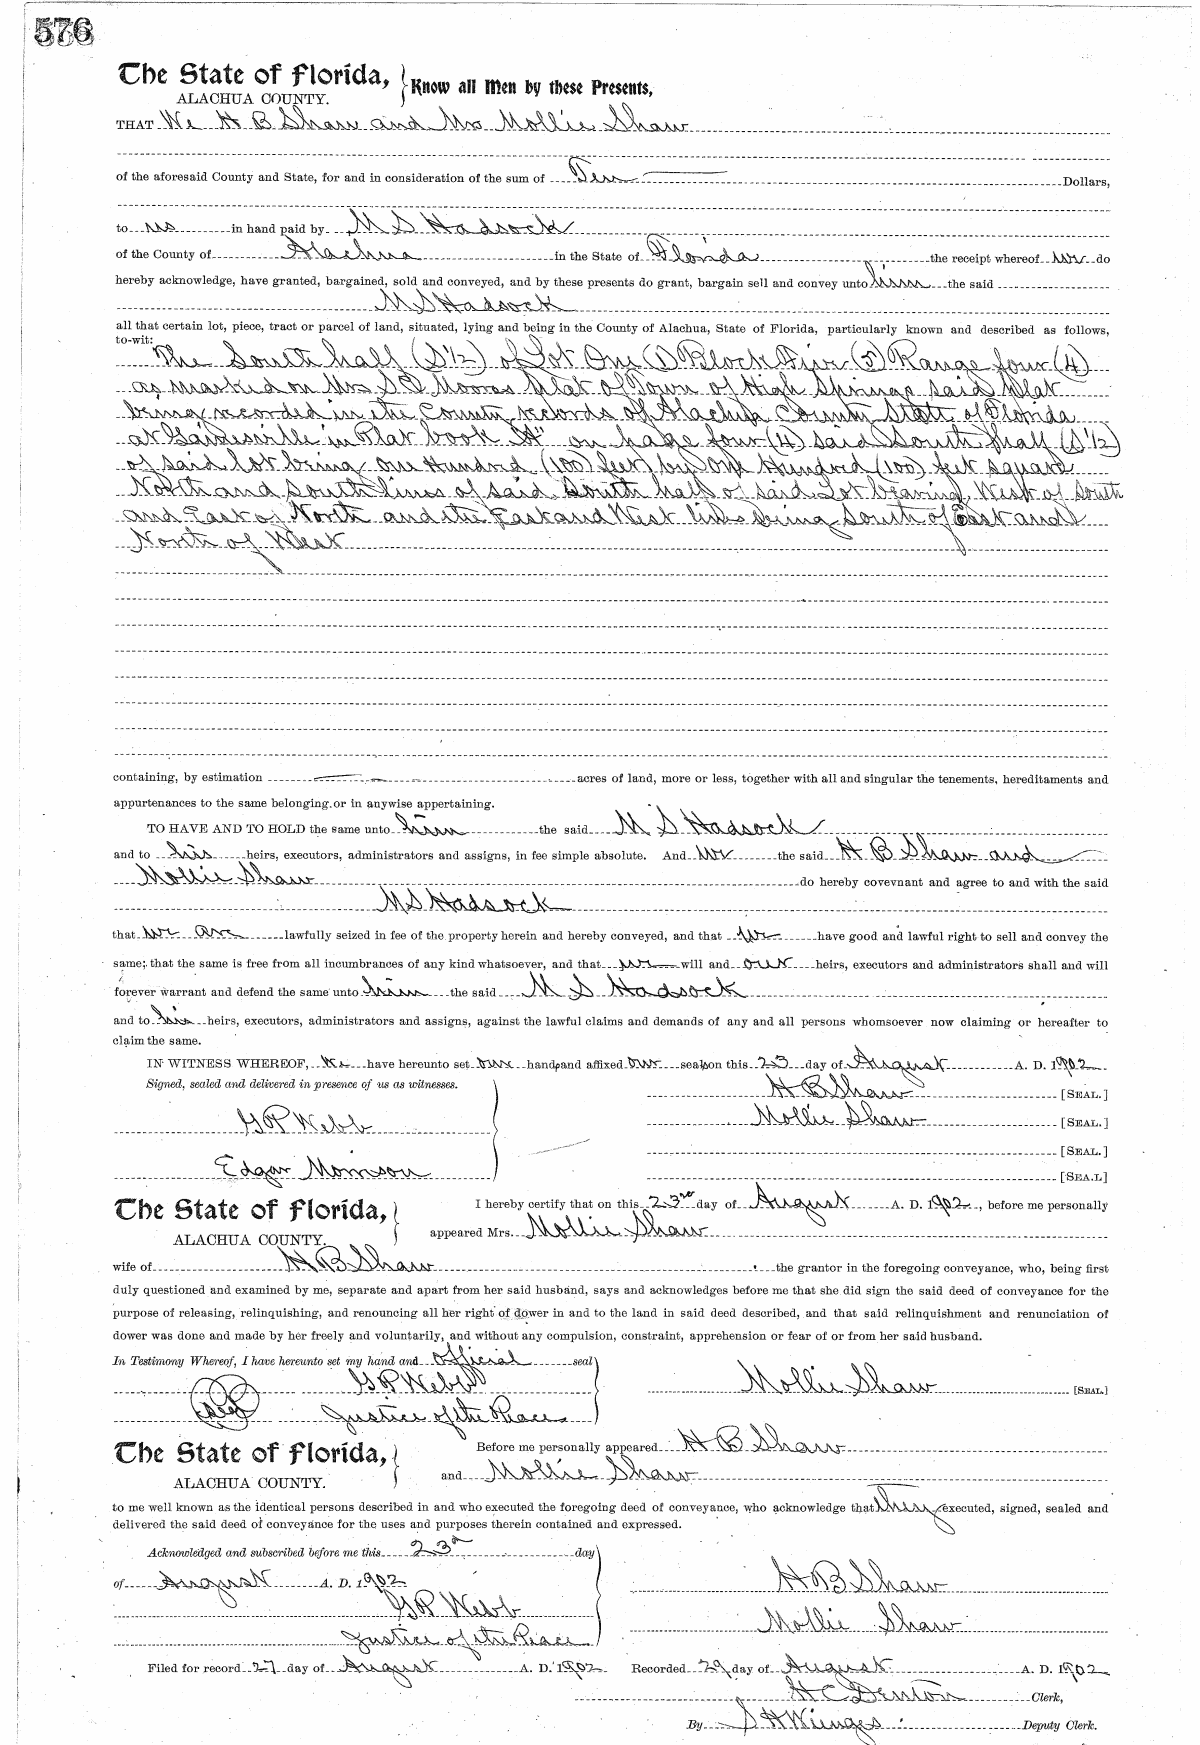 576
The State of Florida, Know all Men by these Presents,
ALACHUA COUNTY.
THAT We H B Shaw and Mrs Mollie Shaw
of the aforesaid County and State, for and in consideration of the sum of Ten Dollars,
to us in hand paid by M S Hadsock
of the County of Alachua in the State of Florida the receipt whereof we do
hereby acknowledge, have granted, bargained, sold and conveyed, and by these presents do grant, bargain sell and convey unto him the said
M S Hadsock
all that certain lot, piece, tract or parcel of land, situated, lying and being in the County of Alachua, State of Florida, particularly known and described as follows,
to-wit:
The South half (S 1/2) of Lot One (1) Block Five (5) Range four (4)
as marked on Mrs S Moores Plat of Town of High Springs said Plat
being recorded in the County records of Alachua County State of Florida
at Gainesville in Plat book "A" on page four (4) said South half (S 1/2)
of said lot being one Hundred (100) feet by One Hundred (100) feet square
North and South lines of said South half of said Lot bearing West of South
and East of North and the East and West lines being South of East and
North of West
containing, by estimation acres of land, more or less, together with all and singular the tenements, hereditaments and
appurtenances to the same belonging or in anywise appertaining.
TO HAVE AND TO HOLD the same unto him the said M S Hadsock
and to his heirs, executors, administrators and assigns, in fee simple absolute. And we the said H B Shaw and
Mollie Shaw do hereby covevnant and agree to and with the said
M S Hadsock
that we are lawfully seized in fee of the property herein and hereby conveyed, and that we have good and lawful right to sell and convey the
same; that the same is free from all incumbrances of any kind whatsoever, and that we will and our heirs, executors and administrators shall and will
forever warrant and defend the same unto him the said M S Hadsock
and to his heirs, executors, administrators and assigns, against the lawful claims and demands of any and all persons whomsoever now claiming or hereafter to
claim the same.
IN WITNESS WHEREOF, We have hereunto set our hands and affixed our seals on this 23 day of August A. D. 1902
Signed, sealed and delivered in presence of us as witnesses. H B Shaw [SEAL.]
G P Webb Mollie Shaw [SEAL.]
[SEAL.]
Edgar Morrison [SEAL]
The State of Florida, I hereby certify that on this 23rd day of August A. D. 1902, before me personally
ALACHUA COUNTY. appeared Mrs. Mollie Shaw
wife of H B Shaw the grantor in the foregoing conveyance, who, being first
duly questioned and examined by me, separate and apart from her said husband, says and acknowledges before me that she did sign the said deed of conveyance for the
purpose of releasing, relinquishing, and renouncing all her right of dower in and to the land in said deed described, and that said relinquishment and renunciation of
dower was done and made by her freely and voluntarily, and without any compulsion, constraint, apprehension or fear of or from her said husband.
In Testimony Whereof, I have hereunto set my hand and official seal
G P Webb Mollie Shaw [SEAL.]
Seal Justice of the Peace
The State of Florida, Before me personally appeared H B Shaw
ALACHUA COUNTY. and Mollie Shaw
to me well known as the identical persons described in and who executed the foregoing deed of conveyance, who acknowledge that they executed, signed, sealed and
delivered the said deed of conveyance for the uses and purposes therein contained and expressed.
Acknowledged and subscribed before me this 23d day
of August A. D. 1902 H B Shaw
G P Webb
Mollie Shaw
Justice of the Peace
Filed for record 27 day of August A. D. 1902 Recorded 29 day of August A. D. 1902
H C Denton Clerk,
By S H Wienges Deputy Clerk.